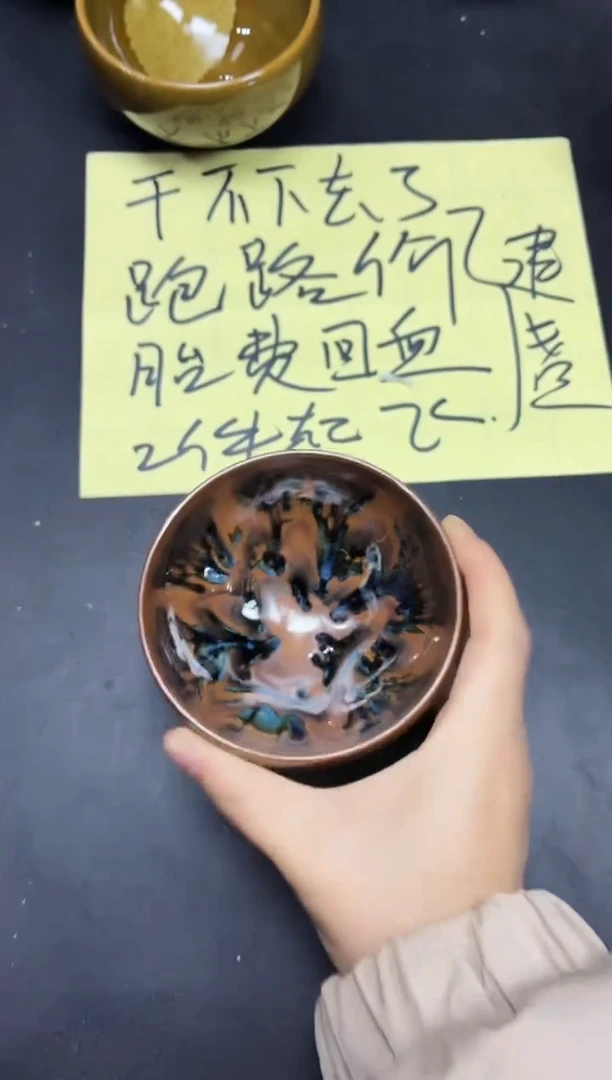 干不下去了
跑路价
胎费回血
2个生起飞.
建盏